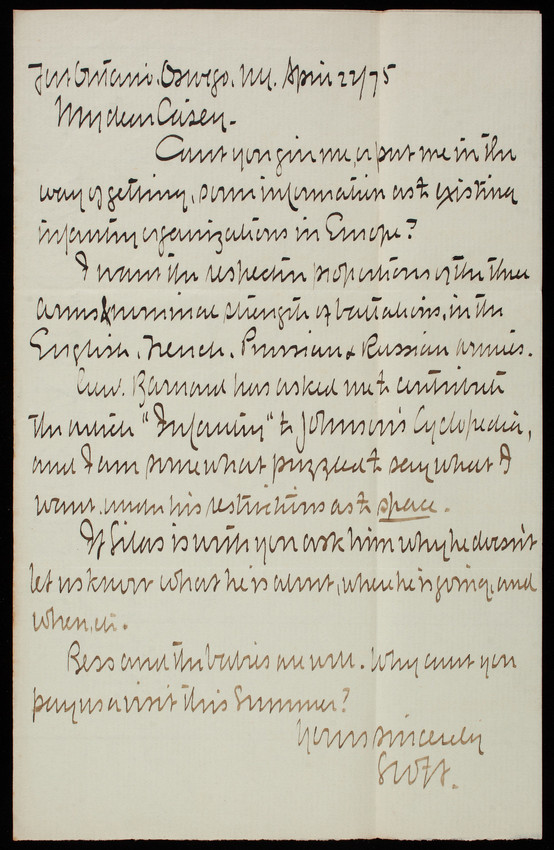 Fort Ontario, Oswego, N.Y. April 22/75
My dear Casey.
Can't you give me, or put me in the
way of getting, some information as to existing
infantry organizations in Europe?
I want the respective proportions of the three
arms & nominal strength of battalions, in the
English, French, Prussian & Russian armies.
Genl. Barnard has asked me to contribute
the article "Infantry" to Johnson's Cyclopedia,
and I am somewhat puzzled to say what I
want, under his restrictions as to space.
If Silas is with you ask him why he doesn't
let us know what he is about, where he is going, and
when, &c.
Bess and the babies are well. Why can't you
pay us a visit this Summer?
Yours sincerely